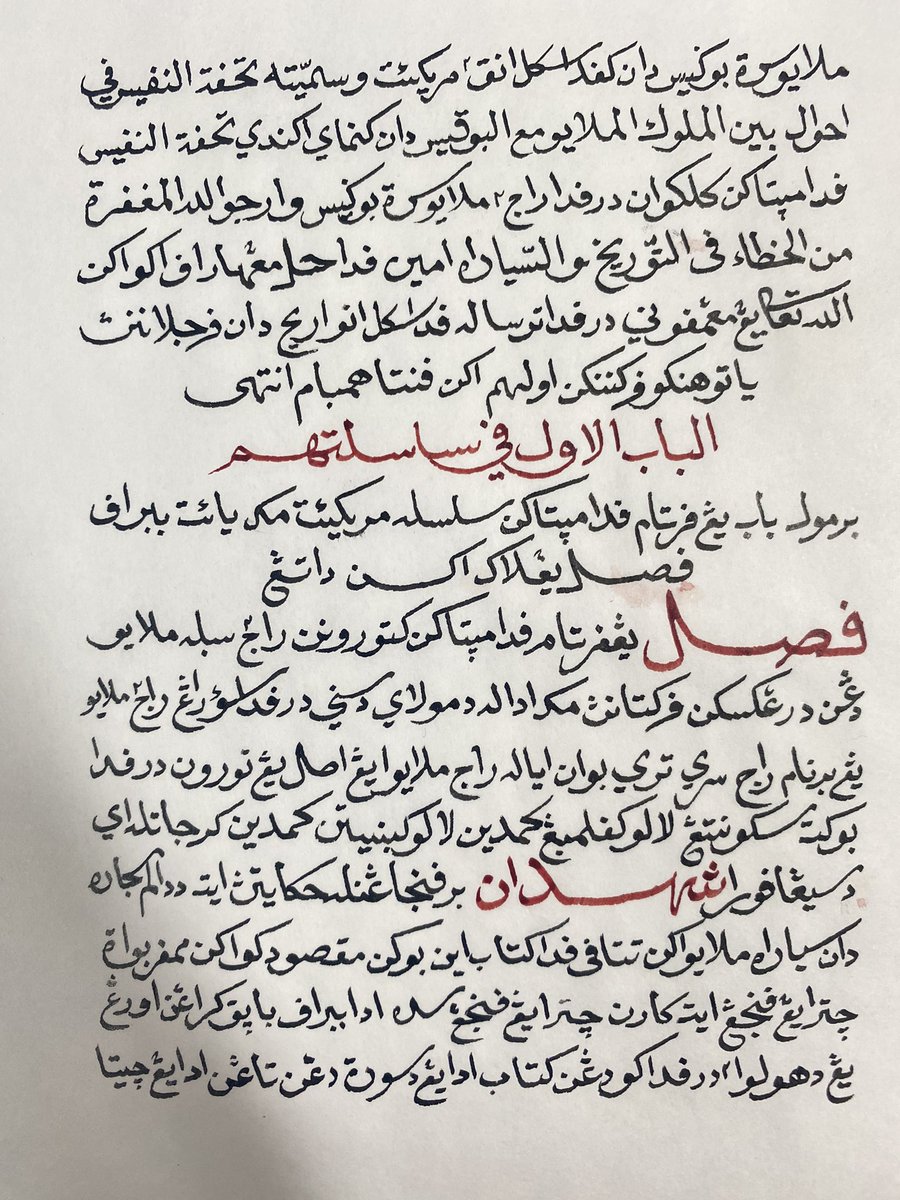 ملايو سرة بوݢيس دان كفد سݢل انق٢ مريكئت وسميّته تحفة النفيس في
احوال بين الملوك الملايو مع البوقيس دان كنماي اكندي تحفة النفيس
فدا مپتاكن كلكوان درفدا راج٢ ملايو سرة بوݢيس وارجو الله المغفرة
من الخطاء في التوريخ والسياره امين فدا حال مڠهارف اكو اكن
الله تعالى يڠ مڠمفوني درفدا ترساله فدا سݢل التواريخ دان فرجلاننث
ياتوهنكو فركننكن اولهم اكن فنتا همبام انتهى
الباب الاول في ساسلتهم
برمول باب يڠ فرتام فدا مپتاكن سلسله مريكئيت مك يائت ببراف
فصل يڠلاݢ اكن داتڠ
فصل يڠفرتام فدا مپتاكن كتوروننن راج٢ سبله ملايو
دڠن درڠكسكن فركتانث مك اداله دمولاي دسني درفد سؤرڠ راج ملايو
يڠ برنام راج سري تري بوان اياله راج ملايو ايڠ اصل يڠ تورون درفدا
بوكت سݢونتڠ لالو كفلمبڠ كمدين لالو كبينتن كمدين كرجاتله اي
دسيڠافورا شهدان برفنجاڠنله حكايتث ايت ددالم سجاره
دان سياره ملايو اكن تتافي فدا كتاب اين بوكن مقصودكو اكن ممفربواة
چترا يڠ فنجڠ ايت كارن چترا يڠ فنجڠ سده ادا ببراف باپق كراڠن اورڠ
يڠ دهولوا٢ درفدا كو دڠن كتاب ادا يڠ دسورة دڠن تاڠن ادا يڠ چيتا